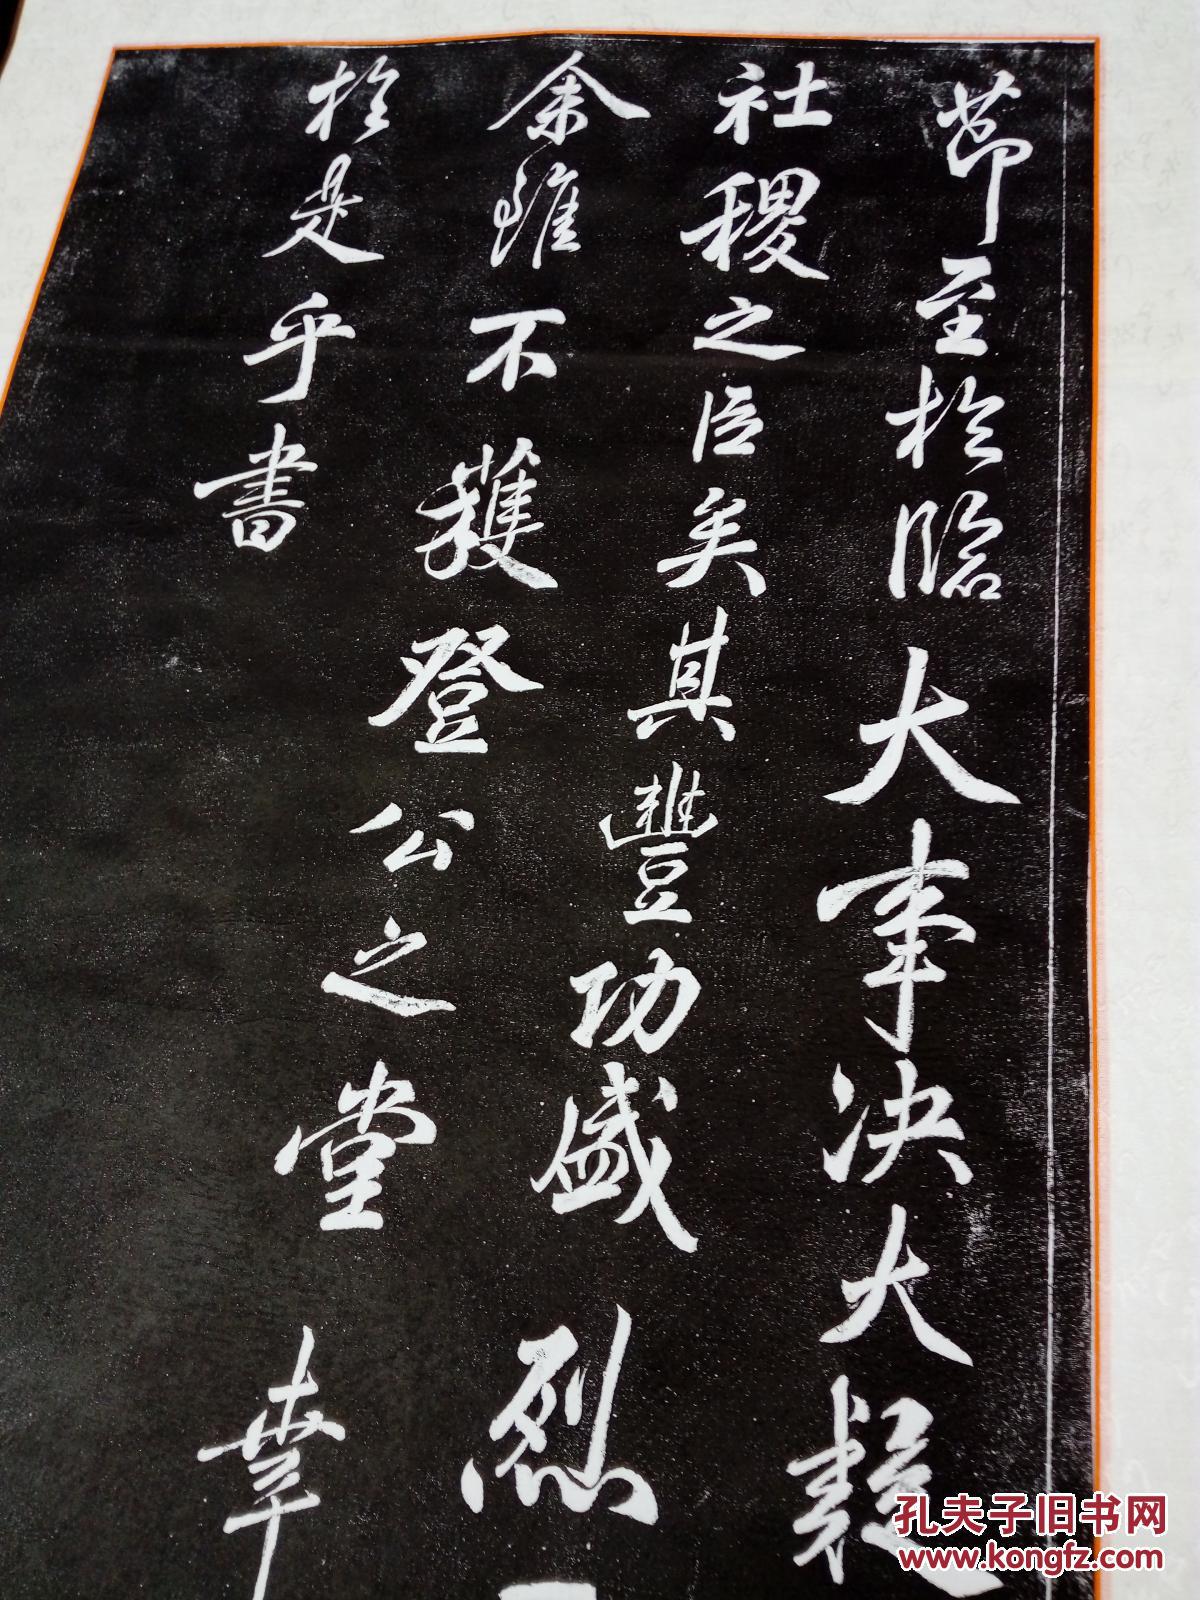 節至於臨大事決大疑
社稷之臣矣其豐功盛烈
余雖不獲登公之堂幸
於是乎書
孔夫子旧书网
www.kongfz.com